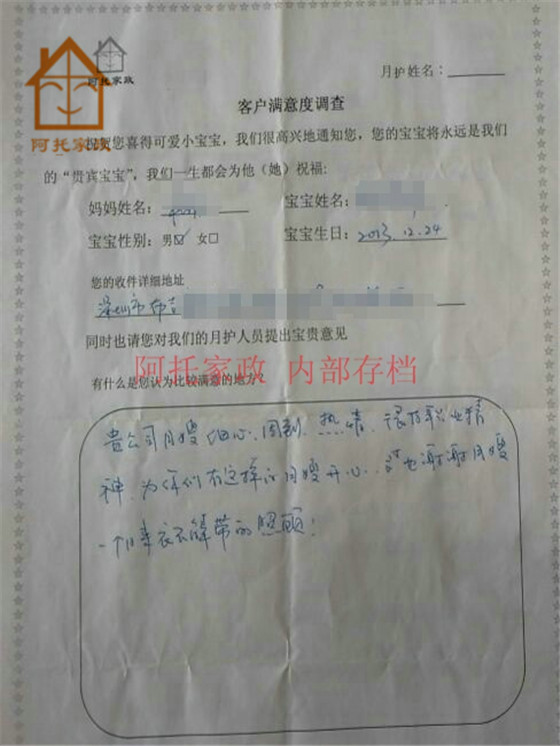 阿托家政
阿托家政
月护姓名：
客户满意度调查
祝贺您喜得可爱小宝宝，我们很高兴地通知您，您的宝宝将永远是我们
的“贵宾宝宝”，我们一生都会为他（她）祝福:
妈妈姓名： 宝宝姓名：
宝宝性别：男☑ 女□ 宝宝生日：2013.12.24
您的收件详细地址
深圳市布吉
同时也请您对我们的月护人员提出宝贵意见
阿托家政 内部存档
有什么是您认为比较满意的地方？
贵公司月嫂细心、周到、热情、很有职业精
神，为你们有这样的月嫂开心，也谢谢月嫂
一个月来衣不解带的照顾！